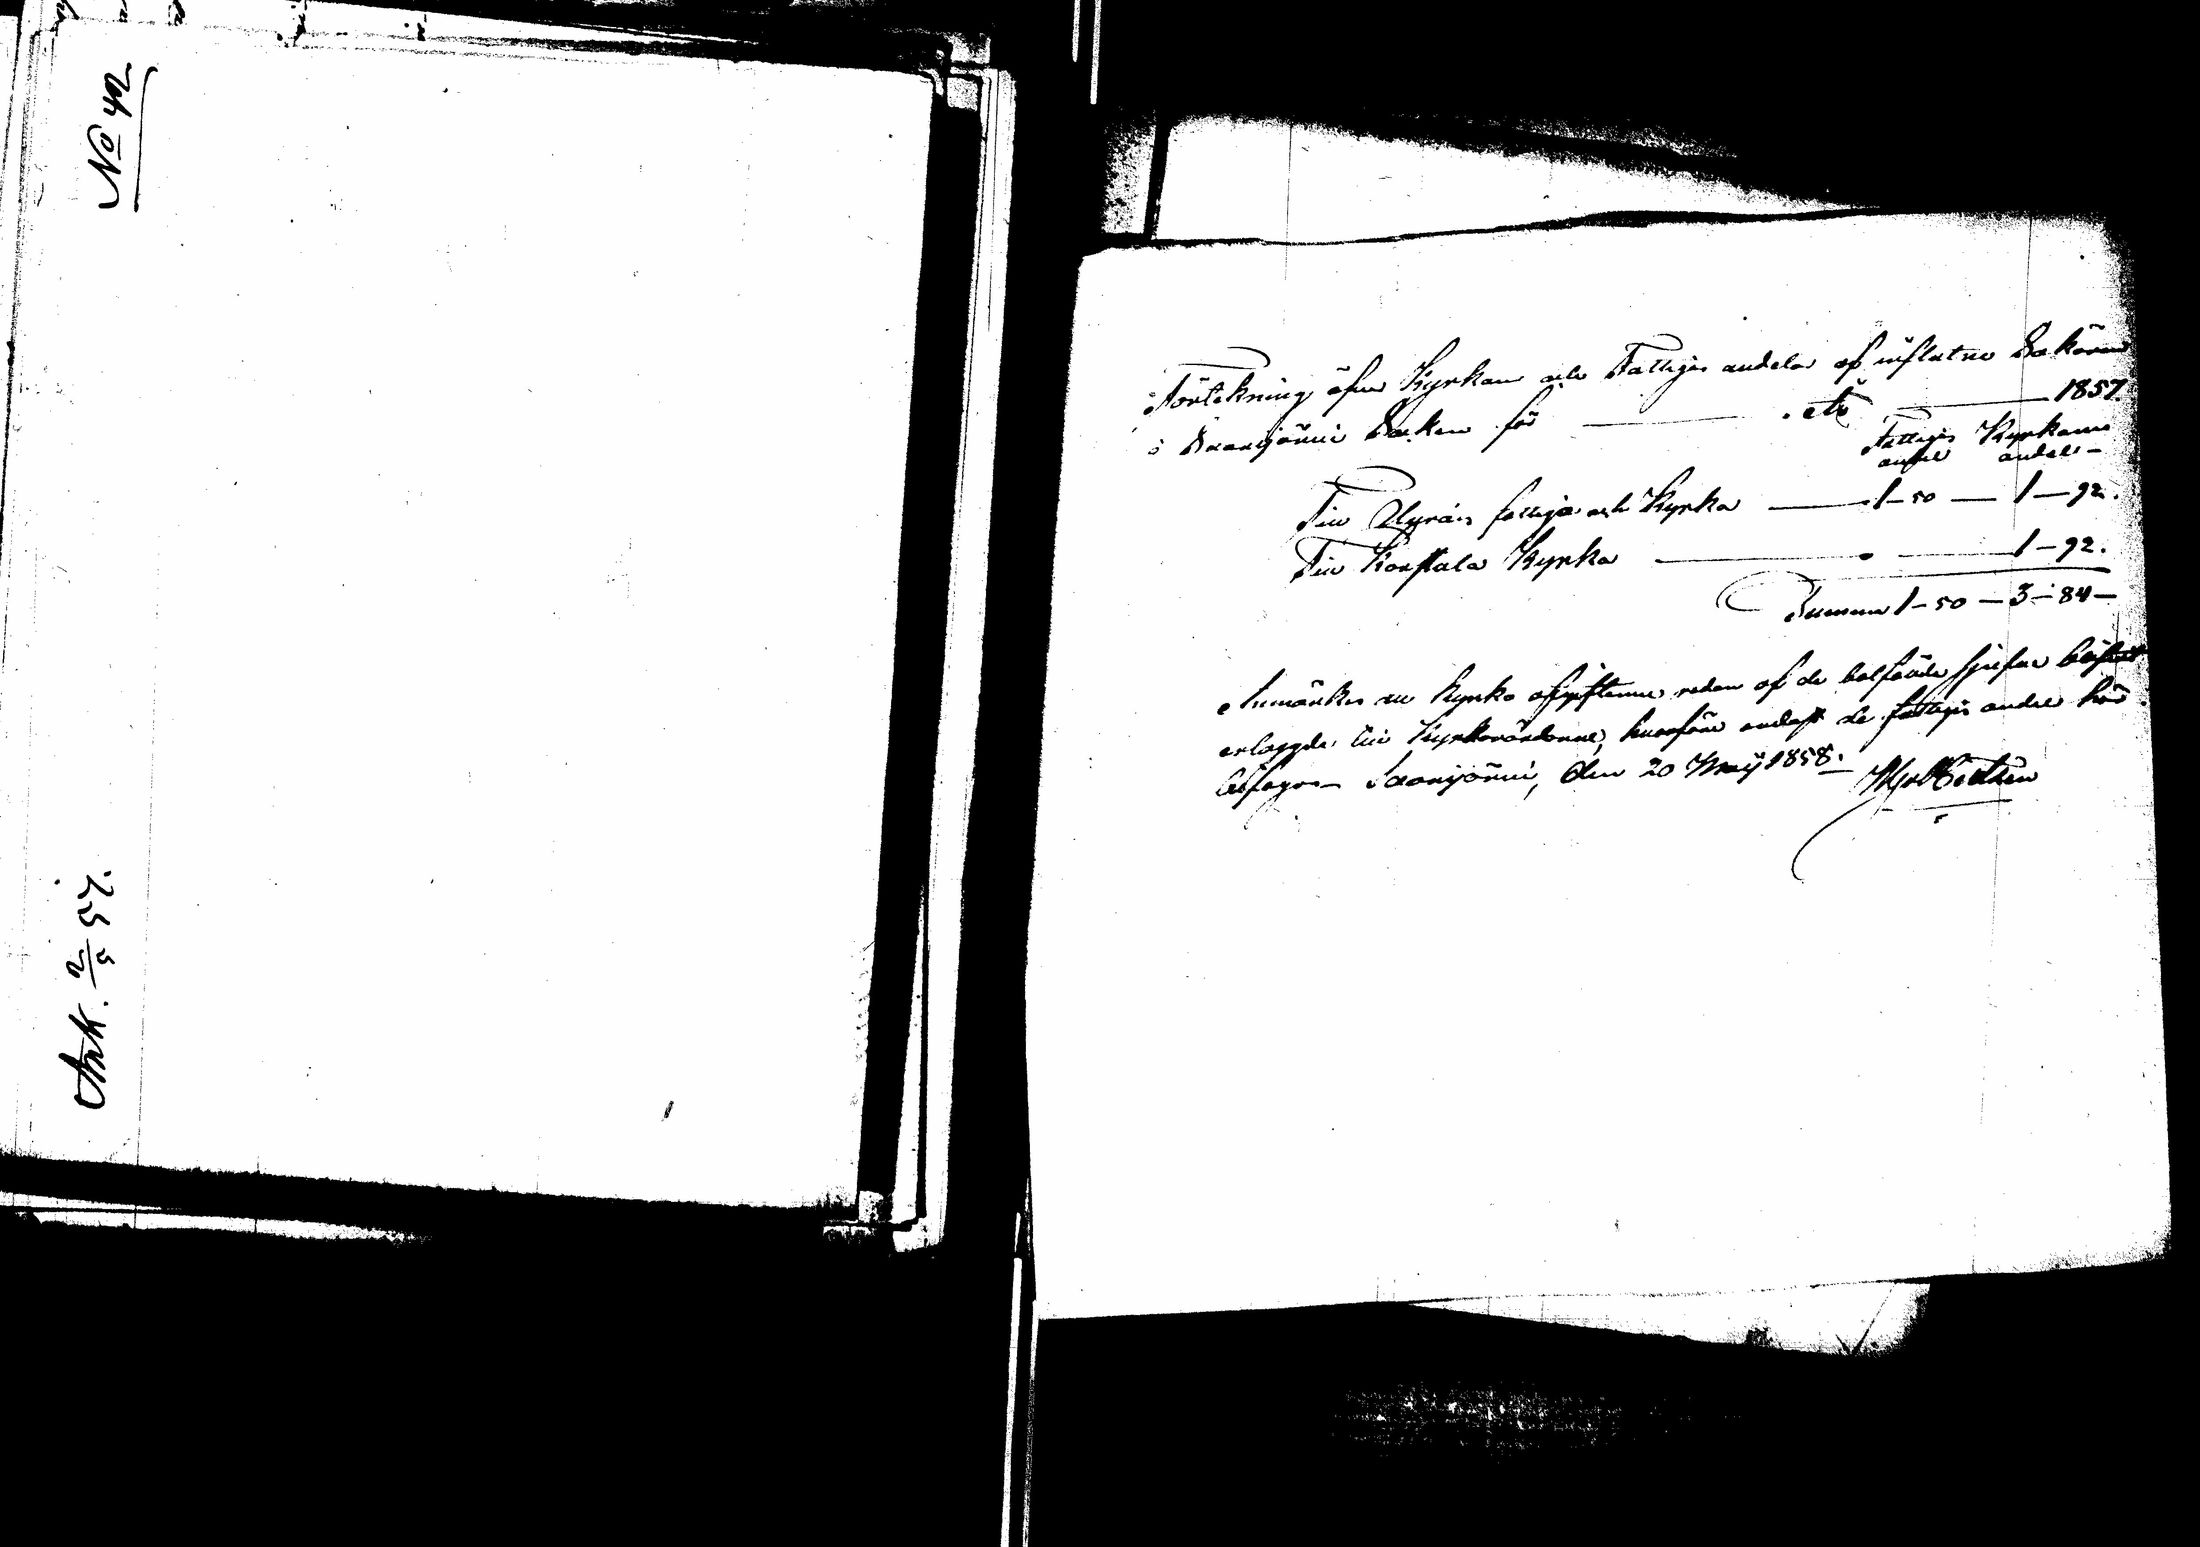 No 42
Ank. 2/5 57.
Förtekning öfver Kyrkans och Fattiges andelar af influtne Saköron
i Saarijärvi Socken för år 1857.
Fattiges Kyrkans
andel andel –
Till fattiga och Kyrka — 1 – 50 — 1 — 92.
Till Kyrka — " — 1 – 92.
Summa 1 – 50 — 3 – 84 –
Anmärkes att Kyrko afgifterne redan af de sjelfve
erlaggde till Kyrkovärdarne, hvarföre endast de fattiges andel här
bifogas – Saarijärvi, den 20 Maij 1858.